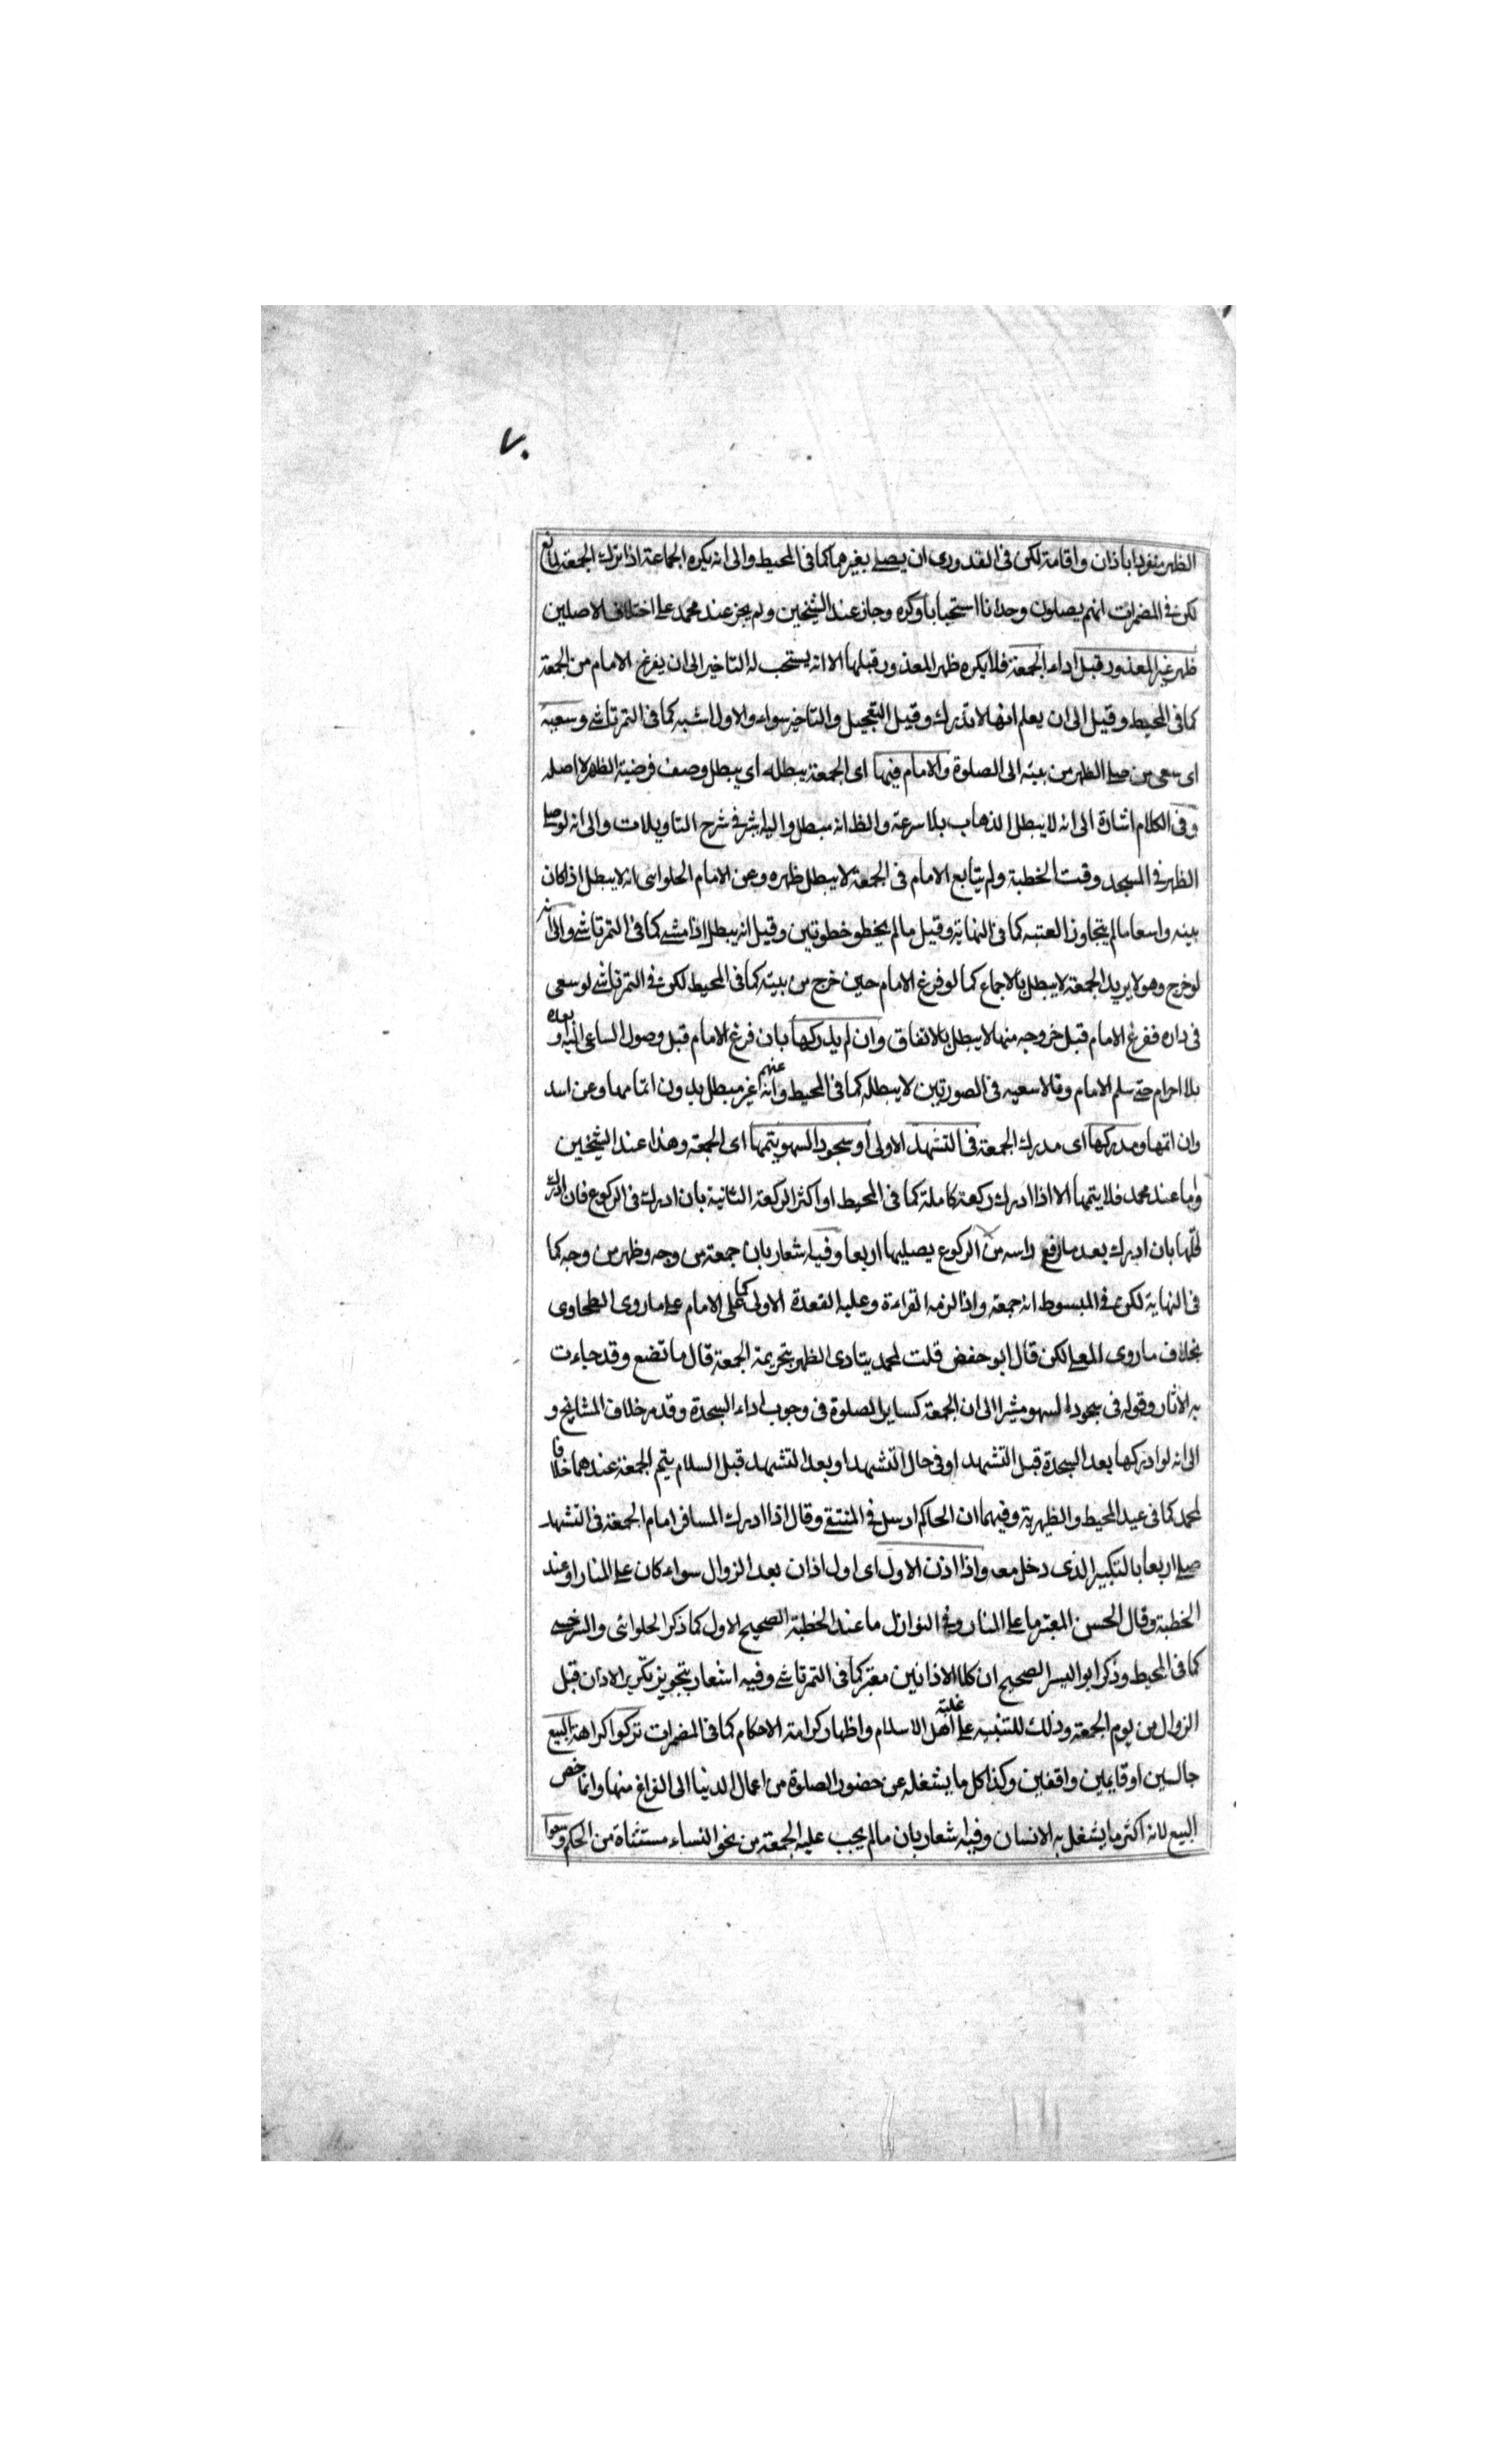 ٧٠
الظهر منفردا باذان واقامة لكن فى القدورى ان يصلى بغيرهما كما فى المحيط والى انه يكره الجماعة اذا ترك الجمعة لمانع
لكن فى المضمرات انهم يصلون وحدانا استحبابا وكره وجاز عند الشيخين ولم يجز عند محمد على اختلاف الاصلين
ظهر غير المعذور قبل اداء الجمعة فلا يكره ظهر المعذور قبلها الا انه يستحب له التاخير الى ان يفرغ الامام من الجمعة
كما فى المحيط وقيل الى ان يعلم انها لا تدرك وقيل التعجيل والتاخير سواء والاول اشبه كما فى التمرتاشى وسعيه
اى سعى من صلى الظهر من بيته الى الصلوة والامام فيها اى الجمعة يبطله اى يبطل وصف فرضية الظهر لا اصله
وفى الكلام اشارة الى انه لا يبطل الذهاب بلا سرعة والظ انه مبطل واليه اشر فى شرح التاويلات والى انه لو صلى
الظهر فى المسجد وقت الخطبة ولم يتابع الامام فى الجمعة لا يبطل ظهره وعن الامام الحلوائى انه لا يبطل اذا كان
بيته واسعا مالم يتجاوز العتبه كما فى النهاية وقيل مالم يخطو خطوتين وقيل انه يبطل اذا مشى كما فى التمرتاشى والى انه
لو خرج وهو لا يريد الجمعة لا يبطل بالاجماع كما لو فرغ الامام حين خرج من بيته كما فى المحيط لكن فى التمرتاشى لو سعى
فى داره ففرغ الامام قبل خروجه منها لا يبطل بالاتفاق وان لم يدركها بان فرغ الامام قبل وصول الساعى اليه او بعده
بلا احرام حتى سلم الامام وقالا سعيه فى الصورتين لا يبطله كما فى المحيط وعنهم انه غير مبطل بدون اتمامها وعن اسد
وان اتمها ومدركها اى مدرك الجمعة فى التشهد الاولى او سجود السهو يتمها اى الجمعة وهذا عند الشيخين
واما عند محمد فلا يتمها الا اذا ادرك ركعة كاملة كما فى المحيط او اكثر الركعة الثانية بان ادرك فى الركوع فان ادرك
اقلها بان ادرك بعد ما رفع راسه من الركوع يصليها اربعا وفيه اشعار بان جمعة من وجه وظهر من وجه كما
فى النهاية لكن فى المبسوط انه جمعة واذا لزمه القراءة وعليه القعدة الاولى كما على الامام على ما روى الطحاوى
بخلاف ما روى المعلى لكن قال ابو حفص قلت لمحمد يتادى الظهر بتحريمة الجمعة قال ما تصنع وقد جاءت
به الاثار وقوله فى سجود السهو مشيرا الى ان الجمعة كساير الصلوة فى وجوب اداء السجدة وقد مر خلاف المشايخ و
الى انه لو ادركها بعد السجدة قبل التشهد او فى حال التشهد او بعد التشهد قبل السلام يتم الجمعة عندهما خلافا
لمحمد كما فى عيد المحيط والظهيرية وفيهما ان الحاكم ارسل فى المنتقى وقال اذا ادرك المسافر امام الجمعة فى التشهد
صلى اربعا بالتكبير الذى دخل معه واذا اذن الاول اى اول اذان بعد الزوال سواء كان على المنار او عند
الخطبة وقال الحسن المعتبر ما على المنار وفى النوازل ما عند الخطبة الصحيح الاول كما ذكر الحلوائى والسرخسى
كما فى المحيط وذكر ابو اليسر الصحيح ان كلا الاذانين معتبر كما فى التمرتاشى وفيه اشعار بتجويز تكرير الاذان قبل
الزوال من يوم الجمعة وذلك للتنبيه على غلبة اهل الاسلام واظهار كرامة الاحكام كما فى المضمرات تركوا كراهة البيع
جالسين او قايمين واقفين وكذا كل ما يشغله عن حضور الصلوة من اعمال الدنيا الى الفراغ منها وانما خص
البيع لانه اكثر ما يشغل به الانسان وفيه اشعار بان مالم يجب عليه الجمعة من نحو النساء مستثناة من الحكم وسعوا